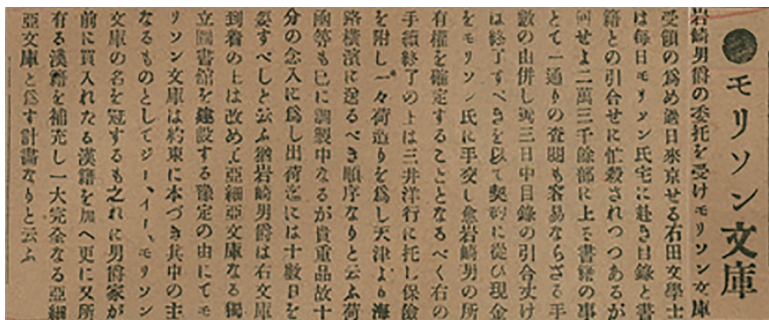 ●モリソン文庫
岩崎男爵の委托を受けモリソン文庫
受領の爲め過日來京せる石田文學士
は毎日モリソン氏宅に赴き目錄と書
籍との引合せに忙殺されつつあるが
何せよ二萬三千餘部に上る書籍の事
とて一通りの查閱も容易ならざる手
數の由併し兩三日中目錄の引合丈け
は終了すべきを以て契約に從ひ現金
をモリソン氏に手交し愈岩崎男の所
有權を確定することとなるべく右の
手續終了の上は三井洋行に托し保險
を附し一々荷造りを爲し天津より海
路橫濱に送るべき順序なりと云ふ荷
函等も已に調製中なるが貴重品故十
分の念入に爲し出荷迄には十數日を
要すべしと云ふ猶岩崎男爵は右文庫
到着の上は改めて亞細亞文庫なる獨
立圖書館を建設する豫定の由にてモ
リソン文庫は約束に本づき其中の主
なるものとしてジー、イー、モリソン
文庫の名を冠するも之れに男爵家が
前に買入れたる漢籍を加へ更に又所
有る漢籍を補充し一大完全なる亞細
亞文庫と爲す計畫なりと云ふ